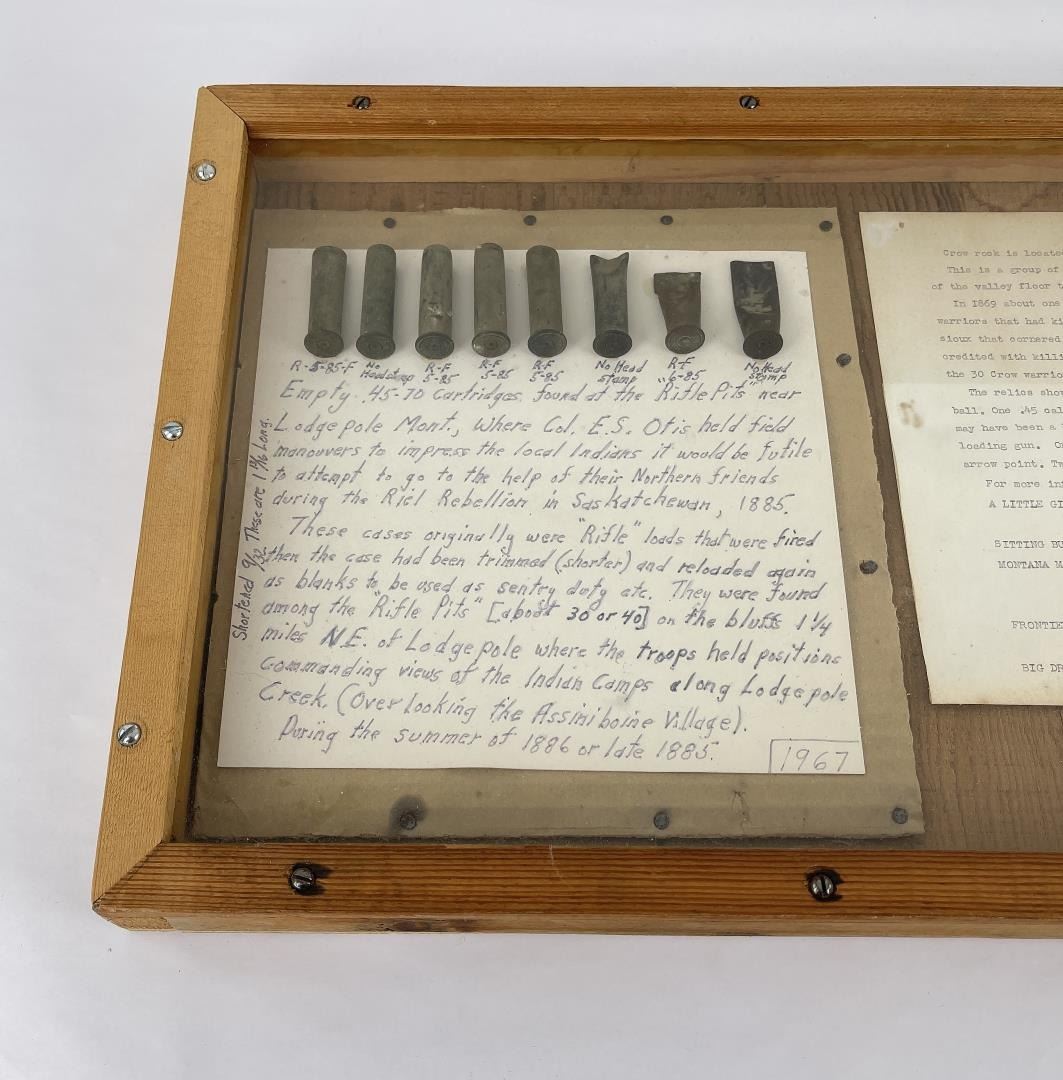 R-5-85-F No Headstamp R-F 5-85 R-F 5-85 R-F 5-85 No Head stamp R-F 6-85 No Head stamp
Empty .45-70 Cartridges found at the "Rifle Pits" near
Lodgepole Mont., where Col. E.S. Otis held field
manouvers to impress the local Indians it would be futile
to attempt to go to the help of their Northern friends
during the Riel Rebellion in Saskatchewan, 1885.
These cases originally were "Rifle" loads that were fired
then the case had been trimmed (shorter) and reloaded again
as blanks to be used as sentry duty etc. They were found
among the "Rifle Pits" [about 30 or 40] on the bluffs 1 1/4
miles N.E. of Lodgepole where the troops held positions
commanding views of the Indian Camps along Lodgepole
Creek. (Over looking the Assiniboine Village).
During the summer of 1886 or late 1885.
1967
Shortened 9/32 These are 1 Long.
Crow rock is locate
This is a group of
of the valley floor t
In 1869 about one
warriors that had ki
sioux that cornered
credited with killi
the 30 Crow warrio
The relics sho
ball. One .45 cal
may have been a
loading gun. On
arrow point. Tw
For more in
A LITTLE GI
SITTING BU
MONTANA M
FRONTIE
BIG DR